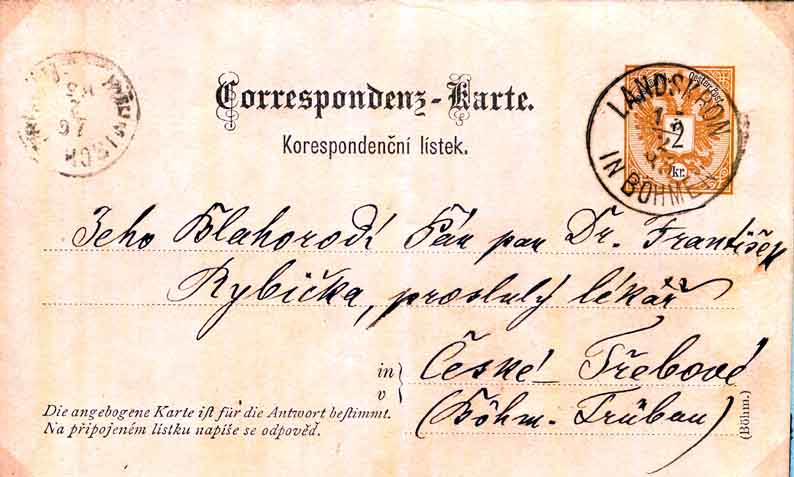 Correspondenz-Karte.
Korespondenční lístek.
LANDSKRON
IN BÖHMEN
2
kr.
Jeho Blahorodí Pán pan Dr. František
Rybička, proslulý lékař
in
v
České Třebové
(Böhm. Trübau)
(Böhm.)
Die angebogene Karte ist für die Antwort bestimmt.
Na připojeném lístku napíše se odpověď.